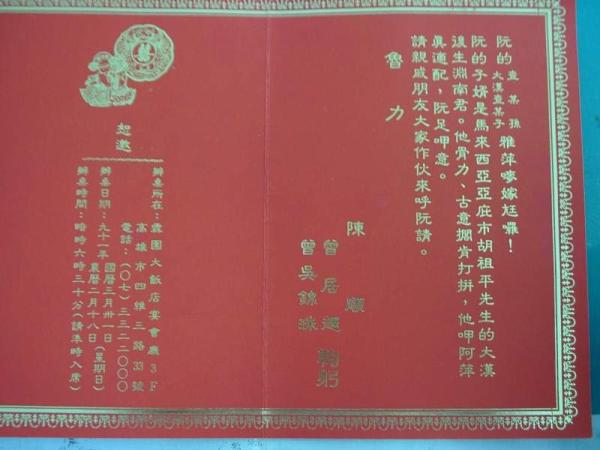 阮的查某孫
大漢查某子雅萍嘜嫁尪囉！
阮的子婿是馬來西亞亞庇市胡祖平先生的大漢
後生淵南君。他骨力、古意擱肯打拼，他呷阿萍
真適配，阮足呷意。
請親戚朋友大家作伙來呼阮請。
魯力
陳 順
曾居
曾吳錦珠
鞠躬
恕邀
辦桌所在：霖園大飯店宴會廳3F
高雄市四維三路33號
電話：(○七)三三二二○○○
辦桌日期：九十一年國曆三月卅一日
農曆二月十八日(星期日)
辦桌時間：暗時六時三十分(請準時入席)